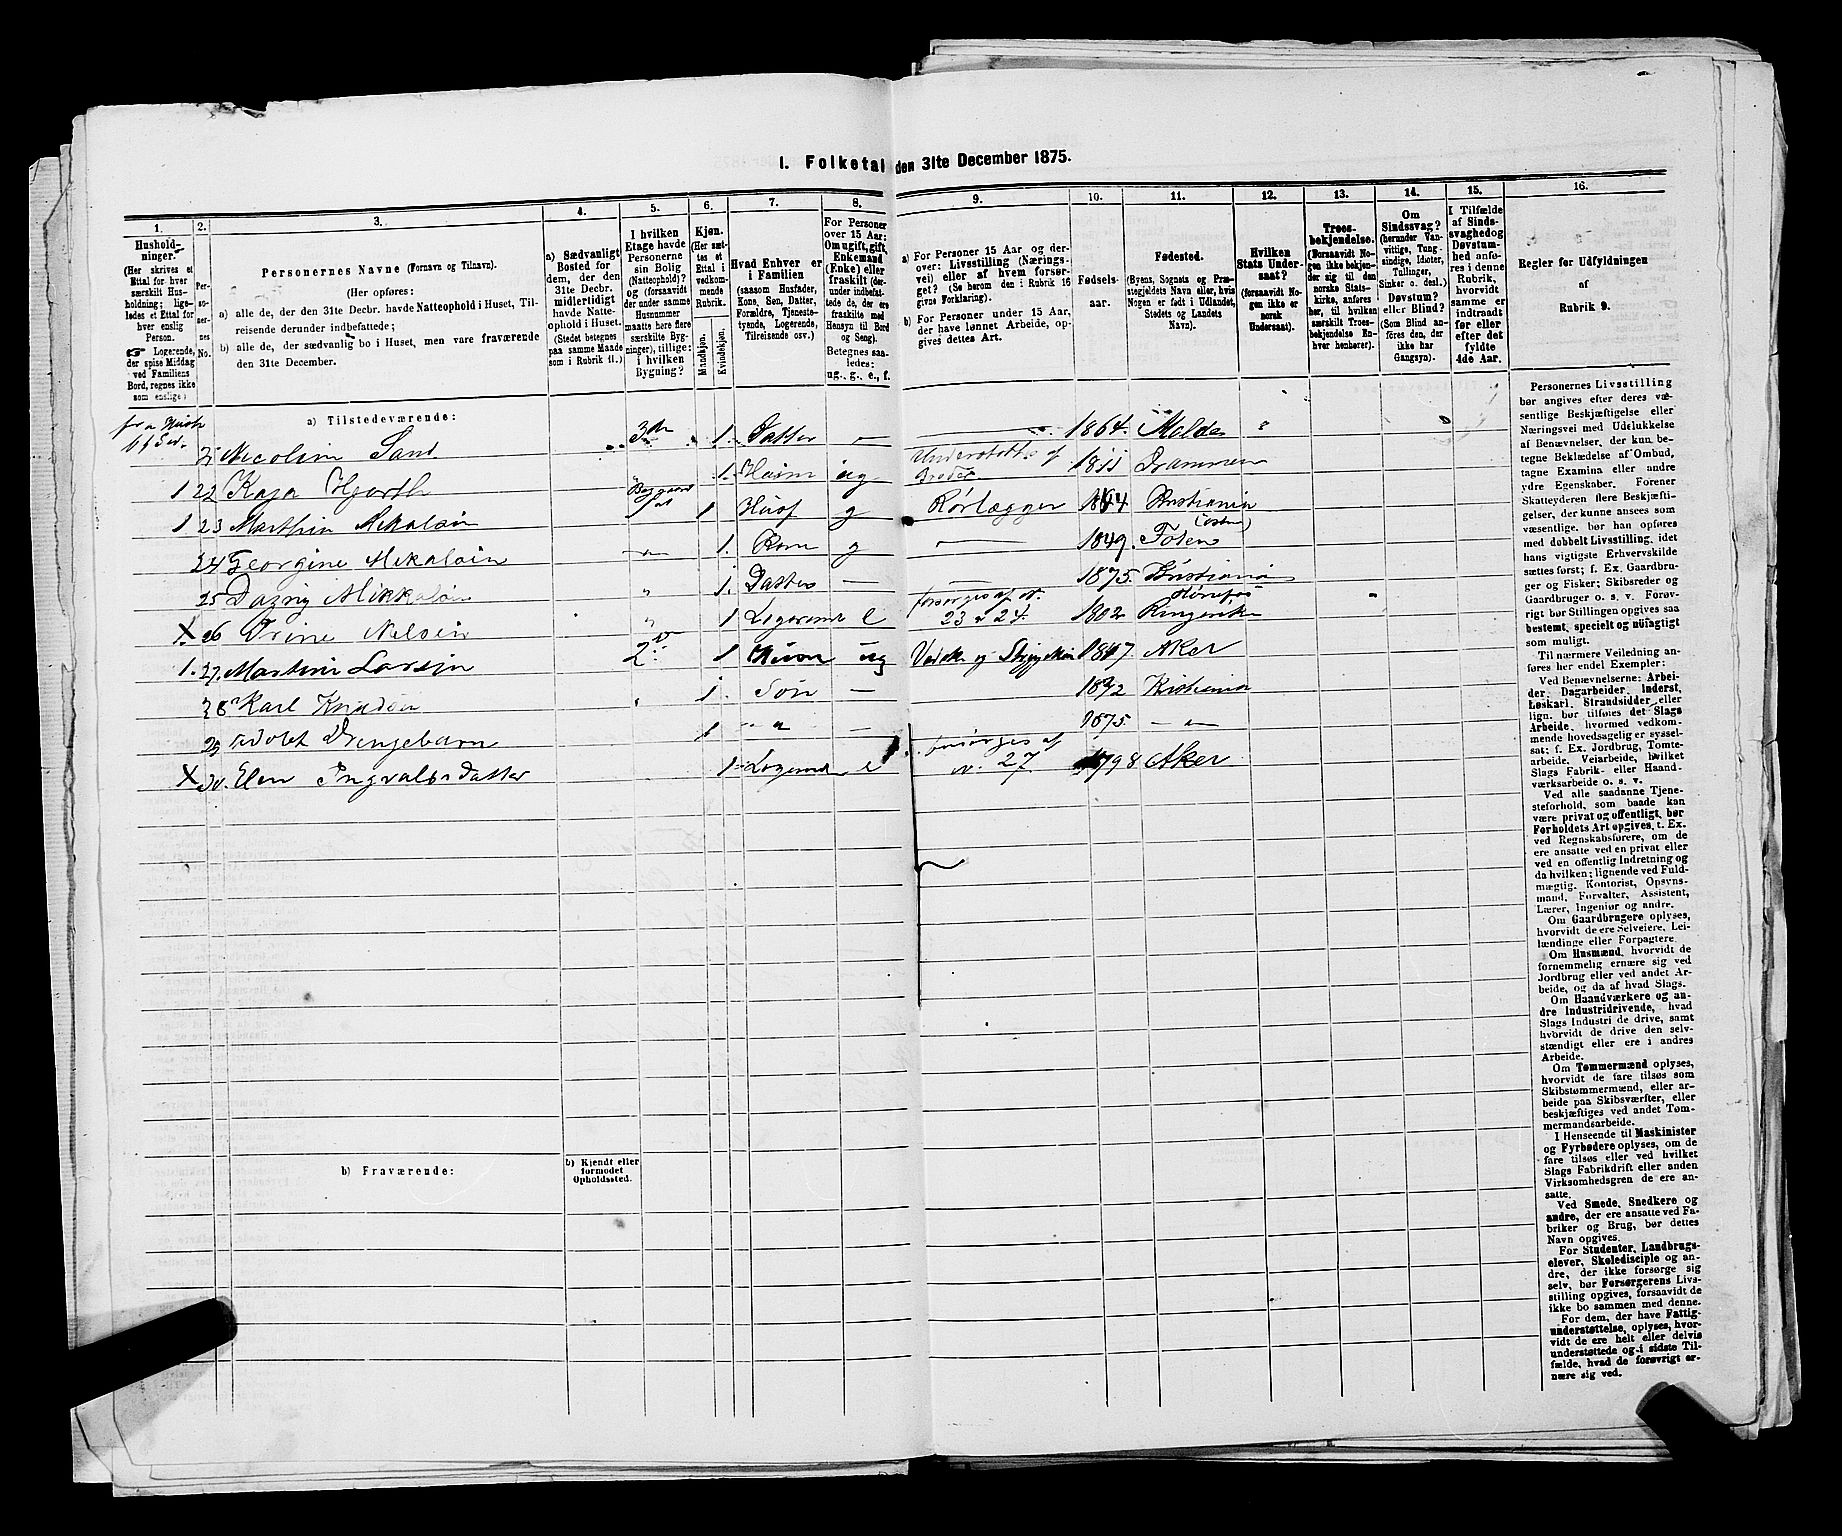 I. Folketal den 31te December 1875.
1. 2. 3. 4. 5. 6. 7. 8. 9. 10. 11. 12. 13. 14. 15. 16.
Hushold-
ninger.
(Her skrives et
Ettal for hver
særskilt Hus-
holdning; lige-
ledes et Ettal for
hver enslig
Person.
☞ Logerende,
der spise Middag
ved Familiens
Bord, regnes ikke
som enslige)
Per-
so-
ner-
nes
No.
Personernes Navne (Fornavn og Tilnavn).
(Her opføres:
a) alle de, der den 31te Decbr. havde Natteophold i Huset, Til-
reisende derunder indbefattede;
b) alle de, der sædvanlig bo i Huset, men vare fraværende
den 31te December.
a) Sædvanligt
Bosted for
dem, der den
31te Decbr.
midlertidigt
havde Natte-
ophold i Huset.
(Stedet betegnes
paa samme Maade
som i Rubrik 11.)
I hvilken
Etage havde
Personerne
sin Bolig
(Natteophold)?
og (forsaavidt
der under samme
Husnummer
maatte høre flere
særskilte Byg-
ninger), tillige:
i hvilken
Bygning?
Kjøn.
(Her sæt-
tes et
Ettal i
vedkom-
mende
Rubrik.
Mandkjøn.
Kvindekjøn.
Hvad Enhver er
i Familien
(saasom Husfader,
Kone, Søn, Datter,
Forældre, Tjeneste-
tyende, Logerende,
Tilreisende osv.)
For Personer
over 15 Aar:
Om ugift, gift,
Enkemand
(Enke) eller
fraskilt (der-
under indbefat-
tede de, der ere
fraskilte med
Hensyn til Bord
og Seng).
Betegnes saa-
ledes:
ug., g., e., f.
a) For Personer 15 Aar og der-
over: Livsstilling (Nærings-
vei) eller af hvem forsør-
get? (Se herom den i Rubrik 16
givne Forklaring).
b) For Personer under 15 Aar,
der have lønnet Arbeide, op-
gives dettes Art.
Fødsels-
aar.
Fødested.
(Byens, Sognets og Præ-
stegjeldets Navn eller, hvis
Nogen er født i Udlandet,
Stedets og Landets
Navn).
Hvilken
Stats Under-
saat?
(forsaavidt No-
gen ikke er
norsk
Undersaat).
Troes-
bekjendelse.
(Forsaavidt No-
gen ikke bekjen-
der sig til den
norske Stats-
kirke, anføres
her, til hvilken
særskilt Troes-
bekjendelse En-
hver henhører).
Om
Sindssvag?
(herunder Van-
vittige, Tung-
sindige, Idioter,
Tullinger,
Sinker o. desl.)
Døvstum?
eller Blind?
(Som Blind an-
føres den, der
ikke har
Gangsyn).
I Tilfælde
af Sinds-
svaghed og
Døvstum-
hed anfø-
res i denne
Rubrik,
hvorvidt
samme er
indtraadt
før eller
efter det
fyldte
4de Aar.
Regler for Udfyldningen
af
Rubrik 9.
a) Tilstedeværende:
Nicoline Sand 3die 1. Datter — — 1864. Molde
1 22 Kaja Hjorth 1. ug Understøttes af Broder Drammen
1. 23 Marthin Mikalsin 1 Husf g Rørlægger 1844 Kristiania
24 Georgine Mikalsin 1. g — 1849. Toten (Østre)
25 Dagny Mikkalsin 1. Datter — — 1875. Kristiania
X 26 Trine Nelsin 1 Logerende e forsørges af N. 23 & 24. 1802 Ringerike Hønefos
1. 27. Martine Larsen 2 1 ug 1847 Aker
28 Karl Knudsen 1. Søn — 1872 Kristiania
29 Adolf 1 — 1875. —
X 30 Elen Ingvalsdatter 1 Logerende e forsørges af N. 27 1798 Aker
b) Fraværende:
b) Kjendt eller
formodet
Opholdssted.
Personernes Livsstilling
bør angives efter deres væ-
sentlige Beskjæftigelse eller
Næringsvei med Udelukkelse
af Benævnelser, der kun be-
tegne Beklædelse af Ombud,
tagne Examina eller andre
ydre Egenskaber. Forener
Skatteyderen flere Beskjæfti-
gelser, der kunne ansees som
væsentlige, bør han opføres
med dobbelt Livsstilling, idet
hans vigtigste Erhvervskilde
sættes først; f. Ex. Gaardbru-
ger og Fisker; Skibsreder og
Gaardbruger o. s. v. Forøv-
rigt bør Stillingen opgives saa
bestemt, specielt og nöiagtigt
som muligt.
Til nærmere Veiledning an-
føres her endel Exempler:
Ved Benævnelserne: Arbei-
der, Dagarbeider, Inderst,
Løskarl, Strandsidder eller
lign. bør tilføies det Slags
Arbeide, hvormed vedkom-
mende hovedsagelig er syssel-
sat; f. Ex. Jordbrug, Tomte-
arbeide, Veiarbeide, hvilket
Slags Fabrik- eller Haand-
værksarbeide o. s. v.
Ved alle saadanne Tjene-
steforhold, som baade kan
være privat og offentligt, bør
Forholdets Art opgives, t. Ex.
ved Regnskabsførere, om de
ere ansatte ved en privat eller
ved en offentlig Indretning og
da hvilken; lignende ved Fuld-
mægtig, Kontorist, Opsyns-
mand, Forvalter, Assistent,
Lærer, Ingeniør og andre.
Om Gaardbrugere oplyses,
hvorvidt de ere Selveiere, Lei-
lændinge eller Forpagtere.
Om Husmænd, hvorvidt de
fornemmelig ernære sig ved
Jordbrug eller ved andet Ar-
beide, og da af hvad Slags.
Om Haandværkere og an-
dre Industridrivende, hvad
Slags Industri de drive, samt
hvorvidt de drive den selv-
stændigt eller ere i andres
Arbeide.
Om Tømmermænd oplyses,
hvorvidt de fare tilsøs som
Skibstømmermænd, eller ar-
beide paa Skibsværfter, eller
beskjæftiges ved andet Tøm-
mermandsarbeide.
I Henseende til Maskinister
og Fyrbødere oplyses, om de
fare tilsøs eller ved hvilket
Slags Fabrikdrift eller anden
Virksomhedsgren de ere an-
satte.
Ved Smede, Snedkere og
andre, der ere ansatte ved Fa-
briker og Brug, bør dettes
Navn opgives.
For Studenter, Landbrugs-
elever, Skoledisciple og an-
dre, der ikke forsørge sig
selv, bør Forsørgerens Livs-
stilling opgives, forsaavidt de
ikke bo sammen med denne.
For dem, der have Fattig-
understøttelse, oplyses, hvor-
vidt de ere helt eller delvis
understøttede og i sidste Til-
fælde, hvad de forøvrigt er-
nære sig ved.